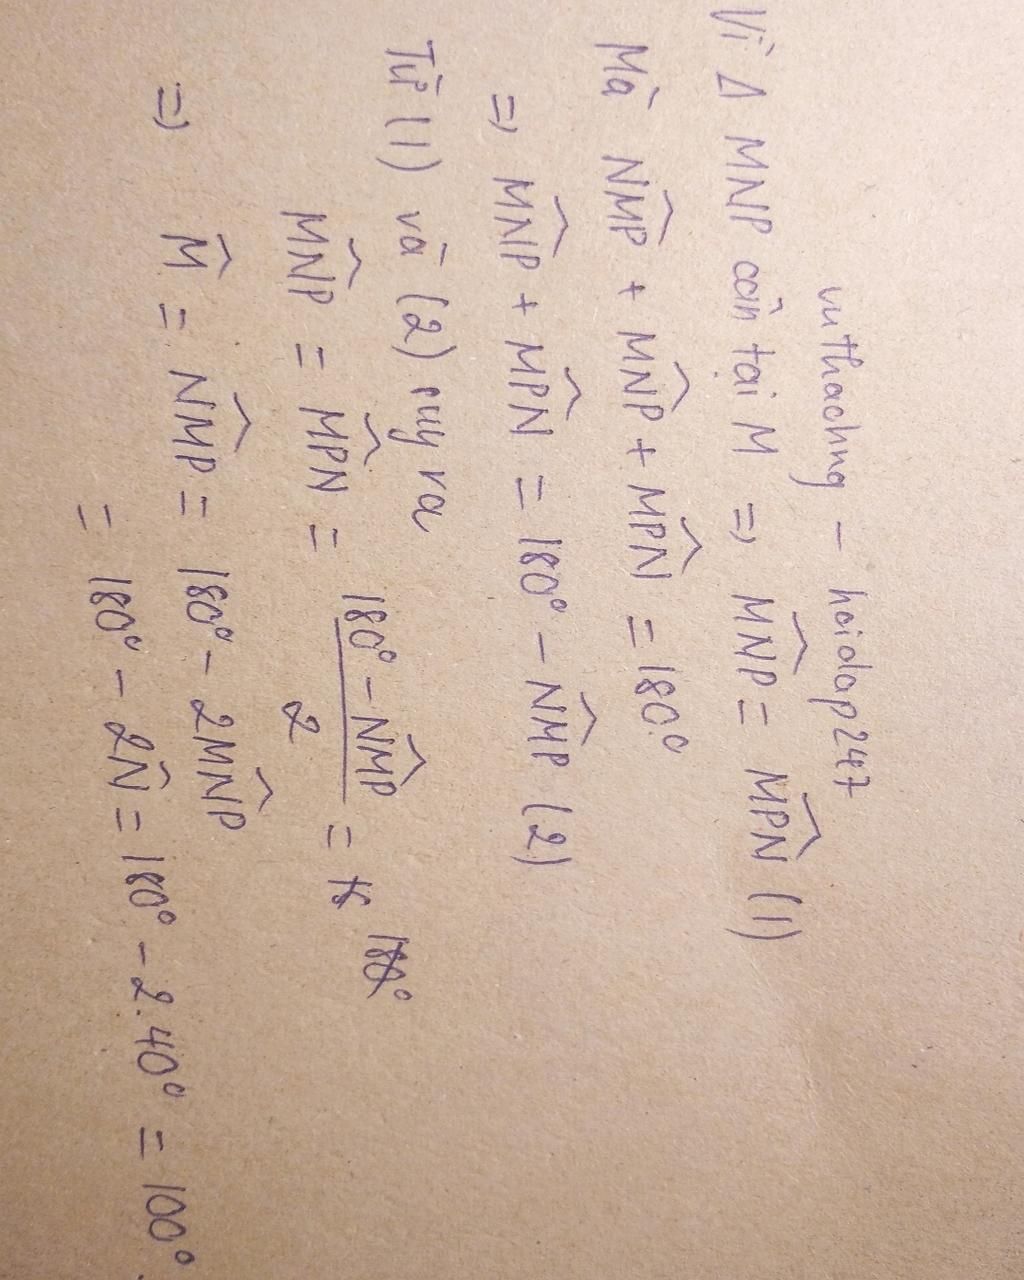 vuthachng - hoidap247
Vì Δ MNP cân tại M => \widehat{MNP} = \widehat{MPN} (1)
Mà \widehat{NMP} + \widehat{MNP} + \widehat{MPN} = 180°
=> \widehat{MNP} + \widehat{MPN} = 180° - \widehat{NMP} (2)
Từ (1) và (2) suy ra
\widehat{MNP} = \widehat{MPN} = \frac{180° - \widehat{NMP}}{2} =
=> \widehat{M} = \widehat{NMP} = 180° - 2\widehat{MNP}
= 180° - 2\widehat{N} = 180° - 2.40° = 100°.